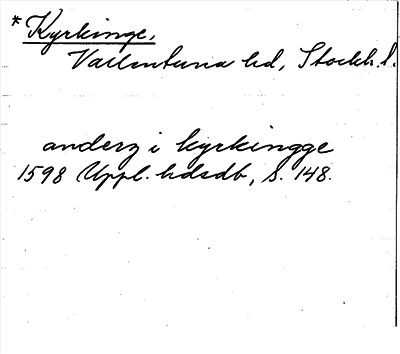 *Kyrkinge,
Vallentuna hd, Stockh. l.
anderz i kyrkingge
1598 Uppl. hdsdb, s. 148.